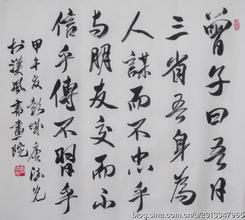 曾子曰吾日
三省吾身為
人謀而不忠乎
与朋友交而不
信乎傳不習乎
甲午夏彭城唐
於漢風書畫院
blog.sina.com.cn/u/2013347965